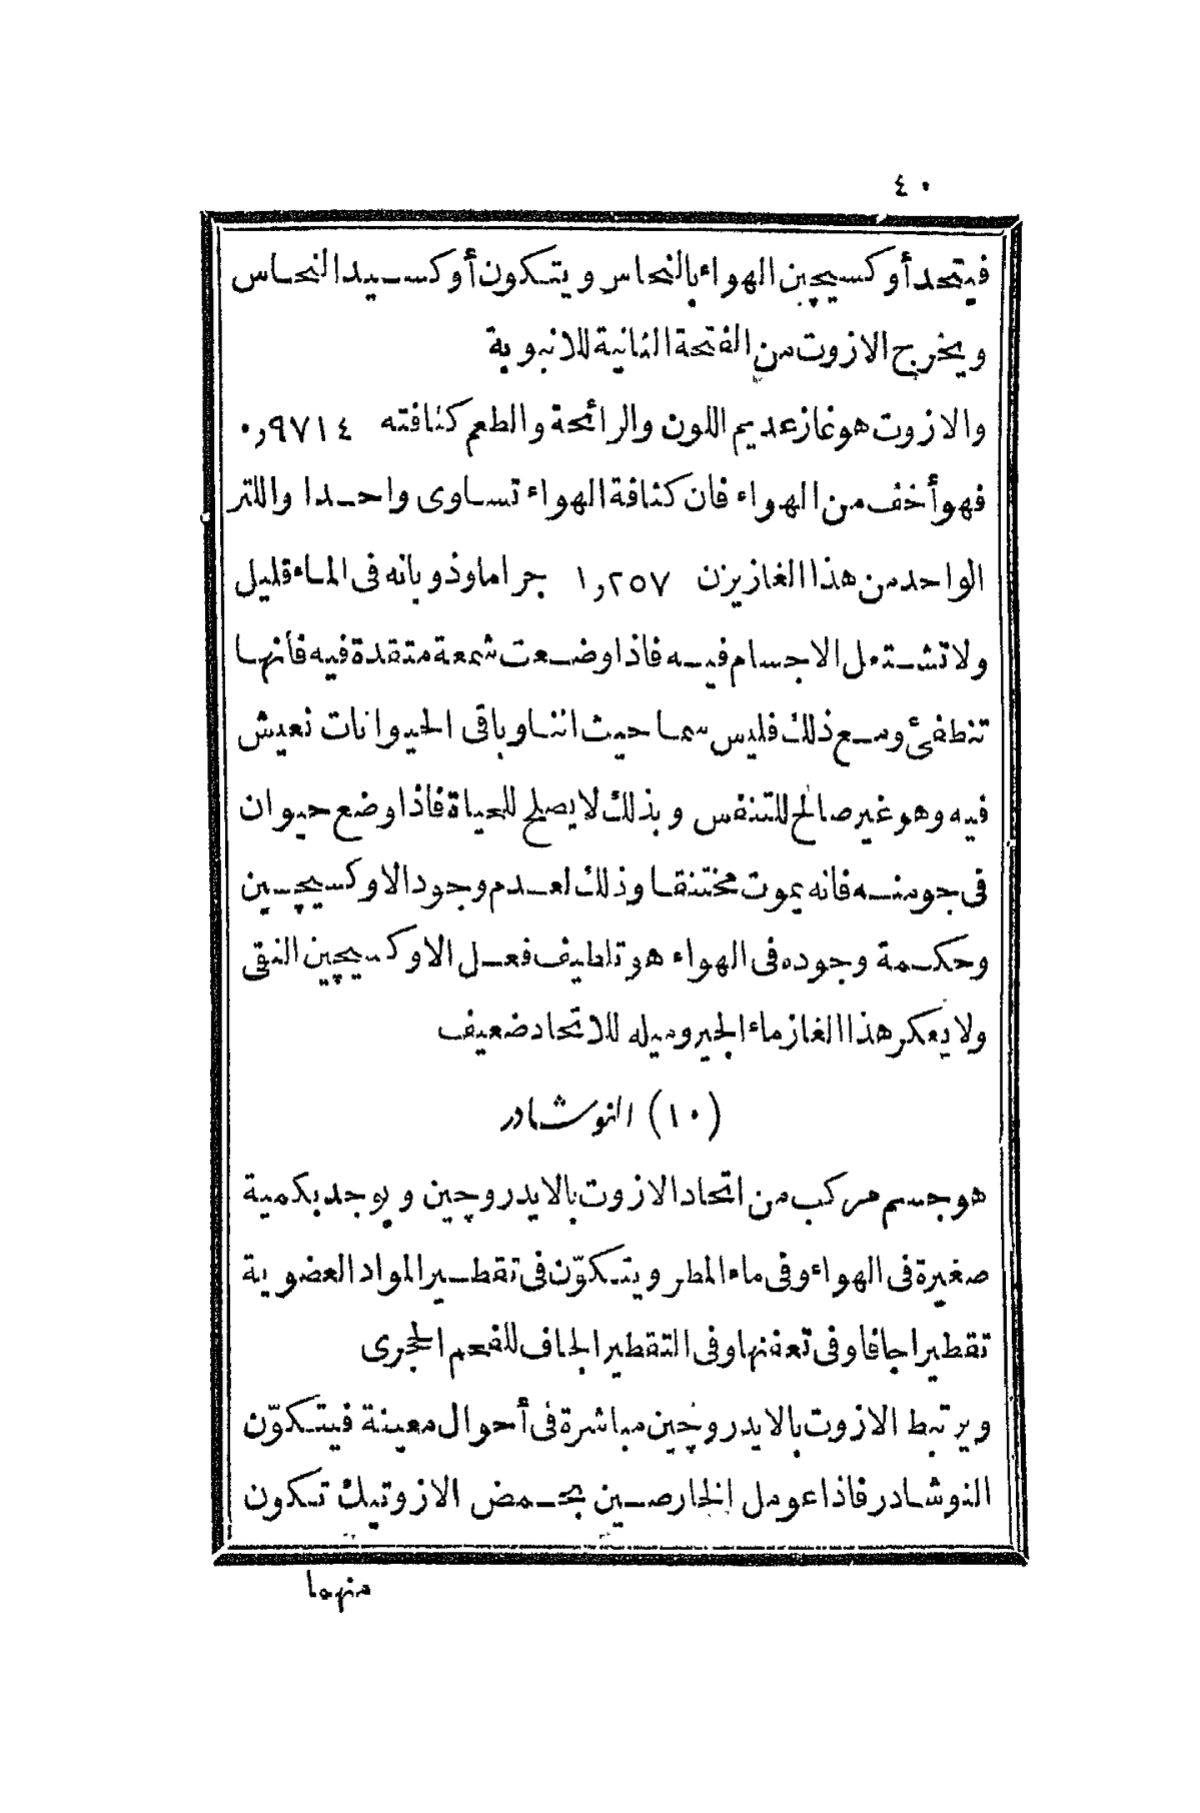 ٤٠
فيتحد أوكسيچين الهواء بالنحاس ويتكون أوكسيد النحاس
ويخرج الازوت من الفتحة الثانية للانبوبة
والازوت هو غاز عديم اللون والرائحة والطعم كثافته ٠,٩٧١٤
فهو أخف من الهواء فان كثافة الهواء تساوى واحدا واللتر
الواحد من هذا الغاز يزن ١,٢٥٧ جراما وذوبانه فى الماء قليل
ولا تشتعل الاجسام فيه فاذا وضعت شمعة متقدة فيه فأنها
تنطفئ ومع ذلك فليس سما حيث اننا وباقى الحيوانات نعيش
فيه وهو غير صالح للتنفس وبذلك لا يصلح للحياة فاذا وضع حيوان
فى جو منه فانه يموت مختنقا وذلك لعدم وجود الاوكسيچين
وحكمة وجوده فى الهواء هو تلطيف فعل الاوكسيچين النقى
ولا يعكر هذا الغاز ماء الجير وميله للاتحاد ضعيف
(١٠) النوشادر
هو جسم مركب من اتحاد الازوت بالايدروچين ويوجد بكمية
صغيرة فى الهواء وفى ماء المطر ويتكوّن فى تقطير المواد العضوية
تقطيرا جافا وفى تعفنها وفى التقطير الجاف للفحم الحجرى
ويرتبط الازوت بالايدروچين مباشرة فى أحوال معينة فيتكوّن
النوشادر فاذا عومل الخارصين بحمض الازوتيك تكون
منهما